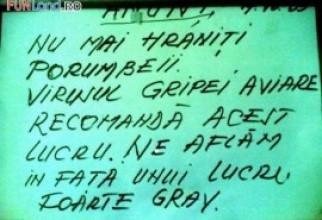 FUNLand.RO
ANUNȚ,
NU MAI HRĂNIȚI
PORUMBEII.
VIRUSUL GRIPEI AVIARE
RECOMANDĂ ACEST
LUCRU. NE AFLĂM
ÎN FAȚA UNUI LUCRU
FOARTE GRAV.